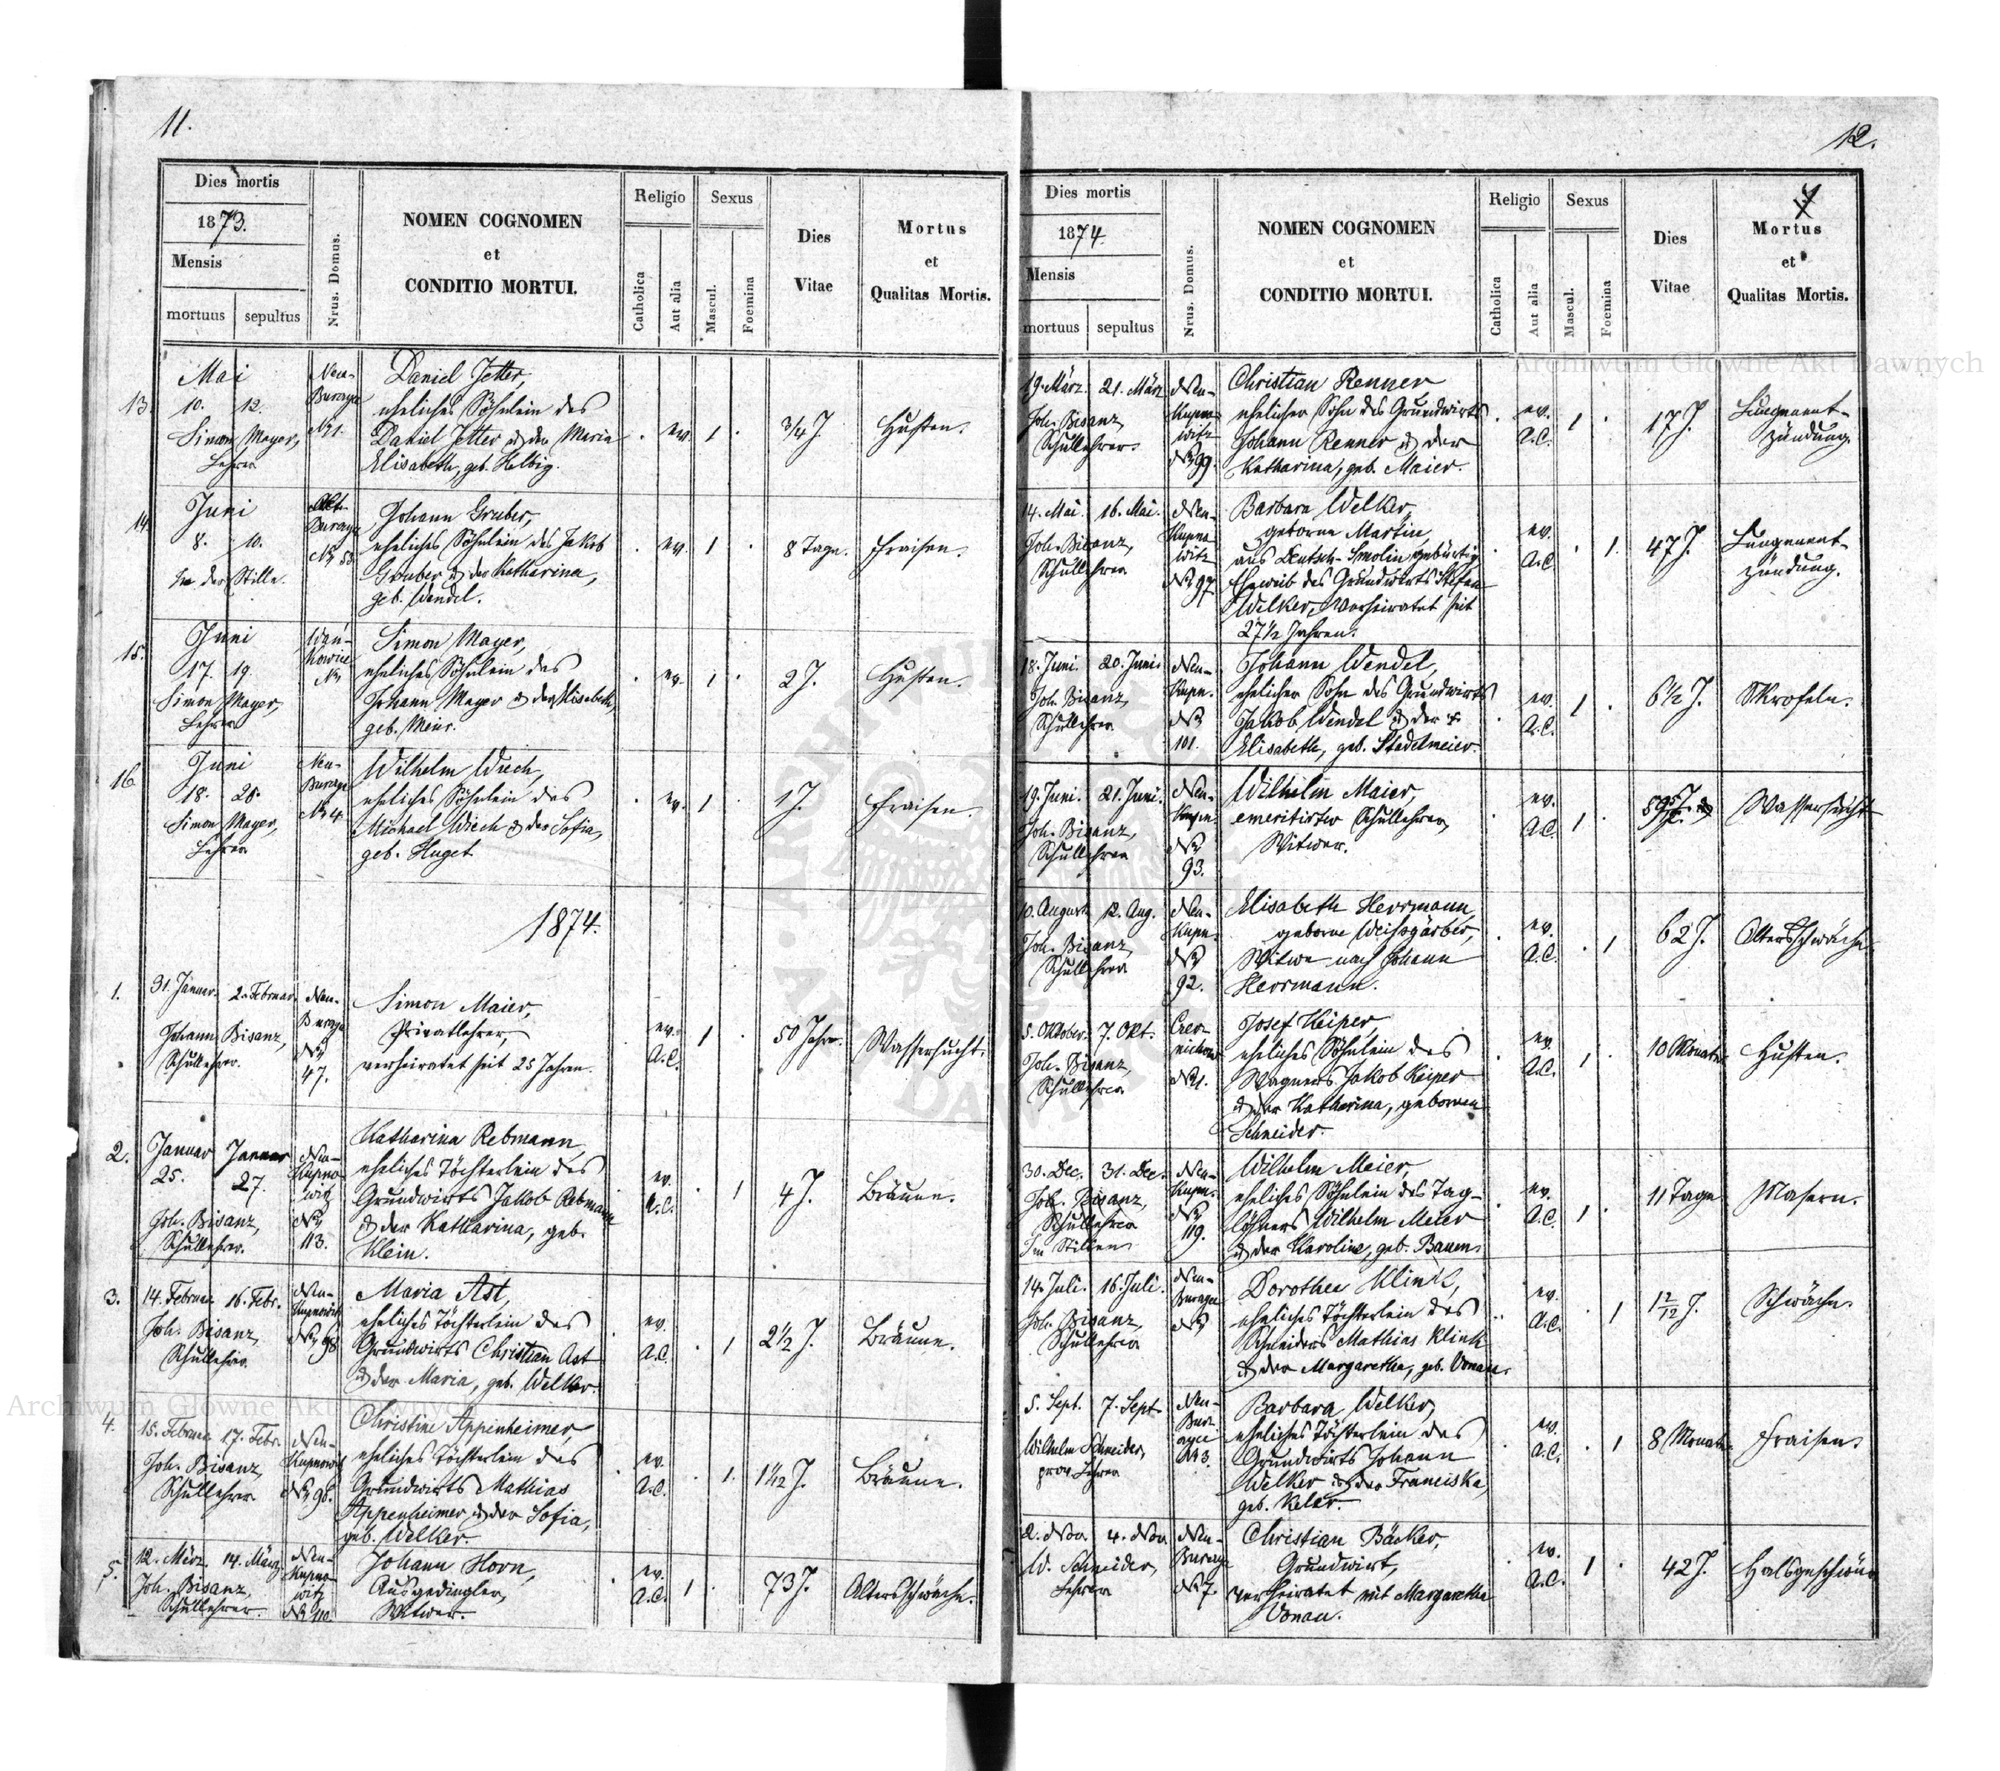 11.
Dies mortis
1873.
Mensis
mortuus
sepultus
Nrus. Domus.
NOMEN COGNOMEN
et
CONDITIO MORTUI.
Religio
Catholica
Aut alia
Sexus
Mascul.
Foemina
Dies
Vitae
Mortus
et
Qualitas Mortis.
13.
Mai
10. 12.
Simon Mayer,
Lehrer
Neu-
Burczyce
№ 1.
Daniel Jetter,
eheliches Söhnlein des
Daniel Jetter u. der Maria
Elisabeth, geb. Helbig.
ev.
1
3/4 J.
Husten.
14.
Juni
8. 10.
In der Stille.
Alt-
№ 53.
Johann Gruber,
eheliches Söhnlein des Jakob
Gruber u. der Katharina,
geb. Wendel.
ev.
1
8 Tage.
Fraisen.
15.
Juni
17. 19.
Simon Mayer,
Lehrer
Wan-
kowice
№
Simon Mayer,
eheliches Söhnlein des
Johann Mayer u. der Elisabeth,
geb. Meier.
ev.
1
2 J.
Husten.
16
Juni
18. 20.
Simon Mayer,
Lehrer
Neu-
№ 4.
Wilhelm Wiech,
eheliches Söhnlein des
Michael Wiech u. der Sofia,
geb. Huget
ev.
1
1 J.
Fraisen.
1874.
1.
31. Januar. 2. Februar.
Johann Bisanz,
Schullehrer.
Neu-
№
47.
Simon Maier,
Privatlehrer,
verheiratet seit 25 Jahren.
ev.
A.C.
1
50 Jahre.
Wassersucht.
2.
Januar Januar
25. 27.
Joh. Bisanz,
Schullehrer.
Neu-
Kupno-
witz
№
113.
Katharina Rebmann,
eheliches Töchterlein des
Grundwirts Jakob Rebmann
u. der Katharina, geb.
Klein.
ev.
A.C.
1
4 J.
Bräune.
3.
14. Februar 16. Febr.
Joh. Bisanz,
Schullehrer.
Neu-
Kupnowitz
№ 98
Maria Ast,
eheliches Töchterlein des
Grundwirts Christian Ast
u. der Maria, geb. Welker.
ev.
A.C.
1
2 1/2 J.
Bräune.
4.
15. Februar 17. Febr.
Joh. Bisanz,
Schullehrer.
Neu-
Kupnowitz
Christine Appenheimer,
eheliches Töchterlein des
Grundwirts Mathias
Appenheimer u. der Sofia,
geb. Welker.
ev.
A.C.
1.
Bräune.
5.
12. März. 14. März.
Joh. Bisanz,
Schullehrer.
Neu-
Kupno-
witz
№ 110
Johann Horn,
Ausgedingler,
Witwer.
ev.
A.C.
1
73 J.
Altersschwäche.
12.
Dies mortis
1874.
Mensis
mortuus
sepultus
Nrus. Domus.
NOMEN COGNOMEN
et
CONDITIO MORTUI.
Religio
Catholica
Aut alia
Sexus
Mascul.
Foemina
Dies
Vitae
Mortus
et
Qualitas Mortis.
19. März. 21. März
Joh. Bisanz,
Schullehrer.
Neu-
Kupno-
witz
№ 99.
Christian Renner
ehelicher Sohn des Grundwirts
Johann Renner u. der
Katharina, geb. Maier.
ev.
A.C.
1
17 J.
Lungenent-
zündung.
14. Mai. 16. Mai.
Joh. Bisanz,
Schullehrer
Neu-
Kupno
witz
№ 97
Barbara Welker,
geborne Martin,
aus Deutsch-Smolin gebürtig,
Eheweib des Grundwirts Stefan
Welker, verheiratet seit
27 1/2 Jahren.
ev.
A.C.
1.
47 J.
Lungenent-
zündung.
18. Juni. 20. Juni.
Joh. Bisanz,
Schullehrer
Neu-
Kupn.
№
101.
Johann Wendel,
ehelicher Sohn des Grundwirts
Jakob Wendel u. der
Elisabeth, geb. Stadelmeier.
ev.
A.C.
1
6 1/2 J.
Skrofeln.
19. Juni. 21. Juni.
Joh. Bisanz,
Schullehrer
Neu-
Kupn.
№
93.
Wilhelm Maier,
emeritirter Schullehrer,
Witwer.
ev.
A.C.
1
Wassersucht
10. August 12. Aug.
Joh. Bisanz,
Schullehrer
Neu-
Kupn.
№
92.
Elisabeth Herrmann,
geborne Weißgärber,
Witwe nach Johann
Herrmann.
ev.
A.C.
1
62 J.
Altersschwäche
5. Oktober. 7. Okt.
Joh. Bisanz,
Schullehrer
№ 1.
Josef Keiper,
eheliches Söhnlein des
Wagners Jakob Keiper
u. der Katharina, gebornen
Schneider.
ev.
A.C.
1
10 Monate
Husten.
30. Dec. 31. Dec.
Joh. Bisanz,
Schullehrer
Im Stillen
Neu-
Kupn.
№
119.
Wilhelm Meier,
eheliches Söhnlein des Tag-
löhners Wilhelm Meier
u. der Karoline, geb. Bauer.
ev.
A.C.
1
11 Tage
Masern.
14. Juli. 16. Juli.
Joh. Bisanz,
Schullehrer
Neu-
№
Dorothea Klink,
eheliches Töchterlein des
Schneiders Mathias Klink
u. der Margaretha, geb. Vonau.
ev.
A.C.
1
1 2/12 J.
Schwäche.
5. Sept. 7. Sept.
Wilhelm Schneider,
prov. Lehrer
Neu-
№ 3.
Barbara Welker,
eheliches Töchterlein des
Grundwirts Johann
Welker u. der Franciska,
geb. Keler.
ev.
A.C.
1
8 Monate
Fraisen.
2. Nov. 4. Nov
W. Schneider,
Lehrer
Neu-
№ 7.
Christian Bäcker,
Grundwirt,
verheiratet mit Margaretha
Vonau.
ev.
A.C.
1
42 J.
Halsgeschwür
Archiwum Głowne Akt Dawnych
Archiwum Głowne Akt Dawnych